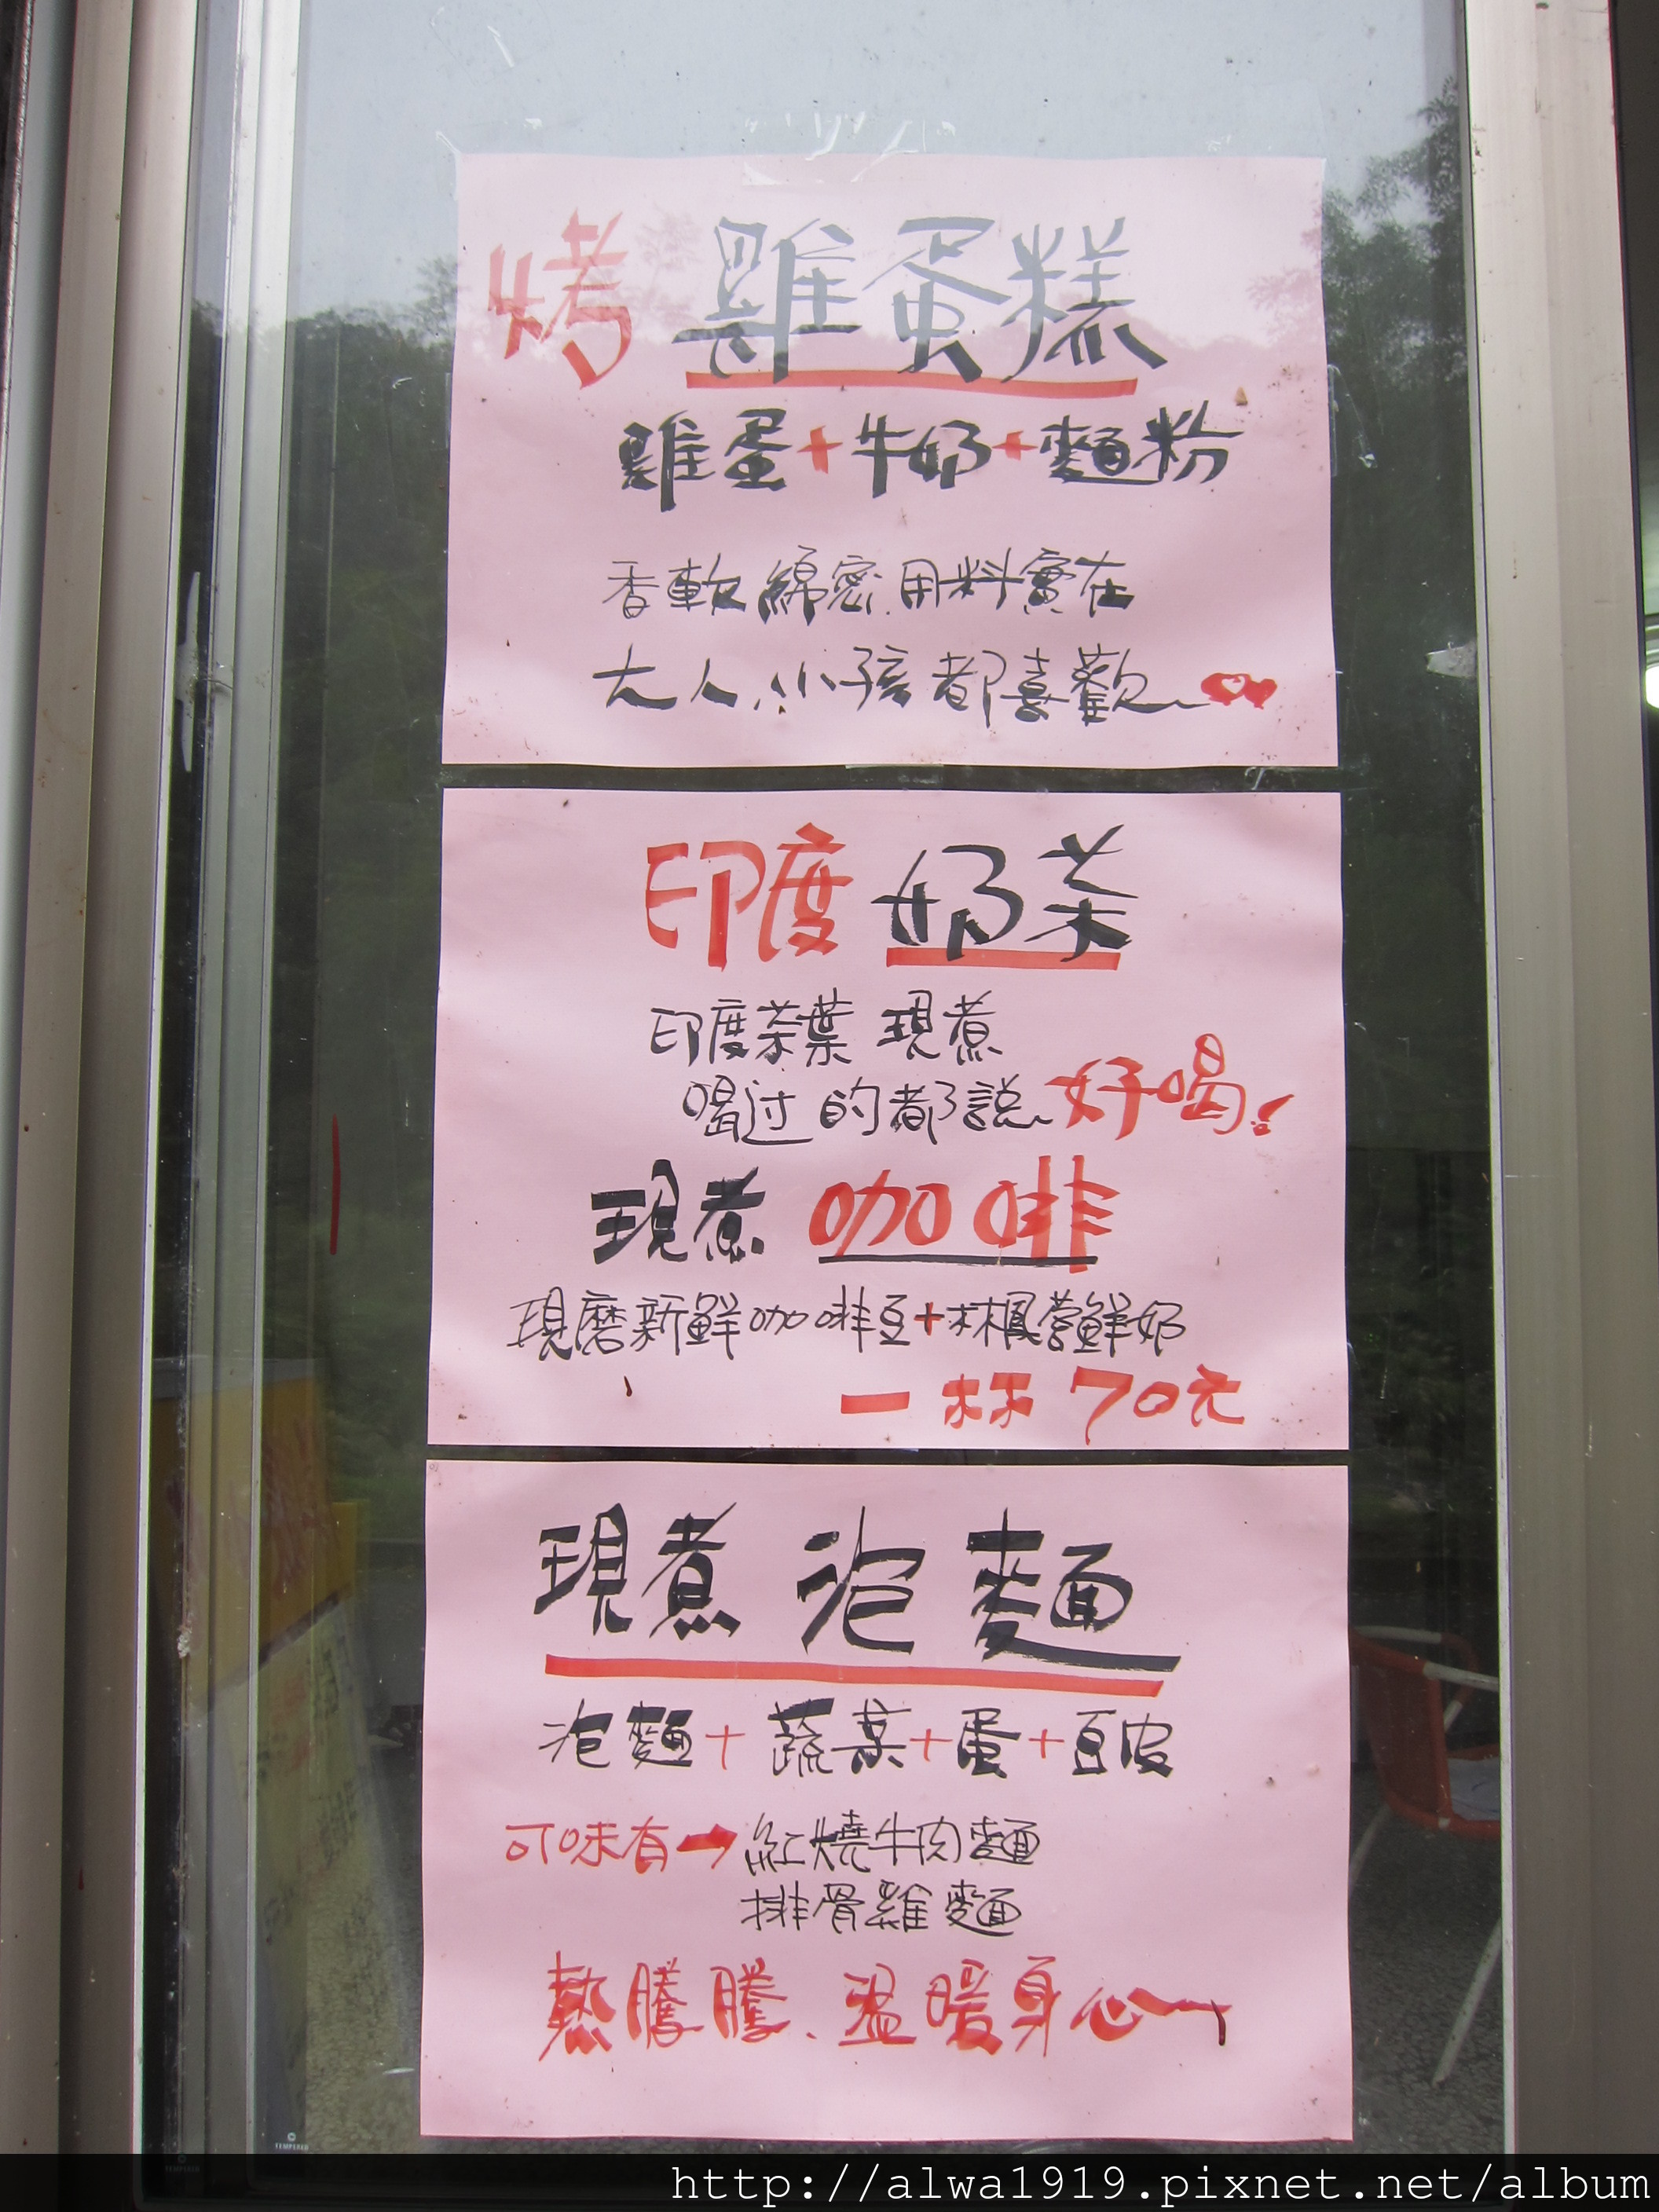 烤 雞蛋糕
雞蛋+牛奶+麵粉
香軟綿密.用料實在
大人、小孩都喜歡~
印度 奶茶
印度茶葉 現煮
喝过的都說 好喝!
現煮 咖啡
現磨新鮮咖啡豆+林鳳營鮮奶
一杯 70元
現煮 泡麵
泡麵+蔬菜+蛋+豆皮
口味有→紅燒牛肉麵
排骨雞麵
熱騰騰、溫暖身心~
TEMPERED
http://alwa1919.pixnet.net/album